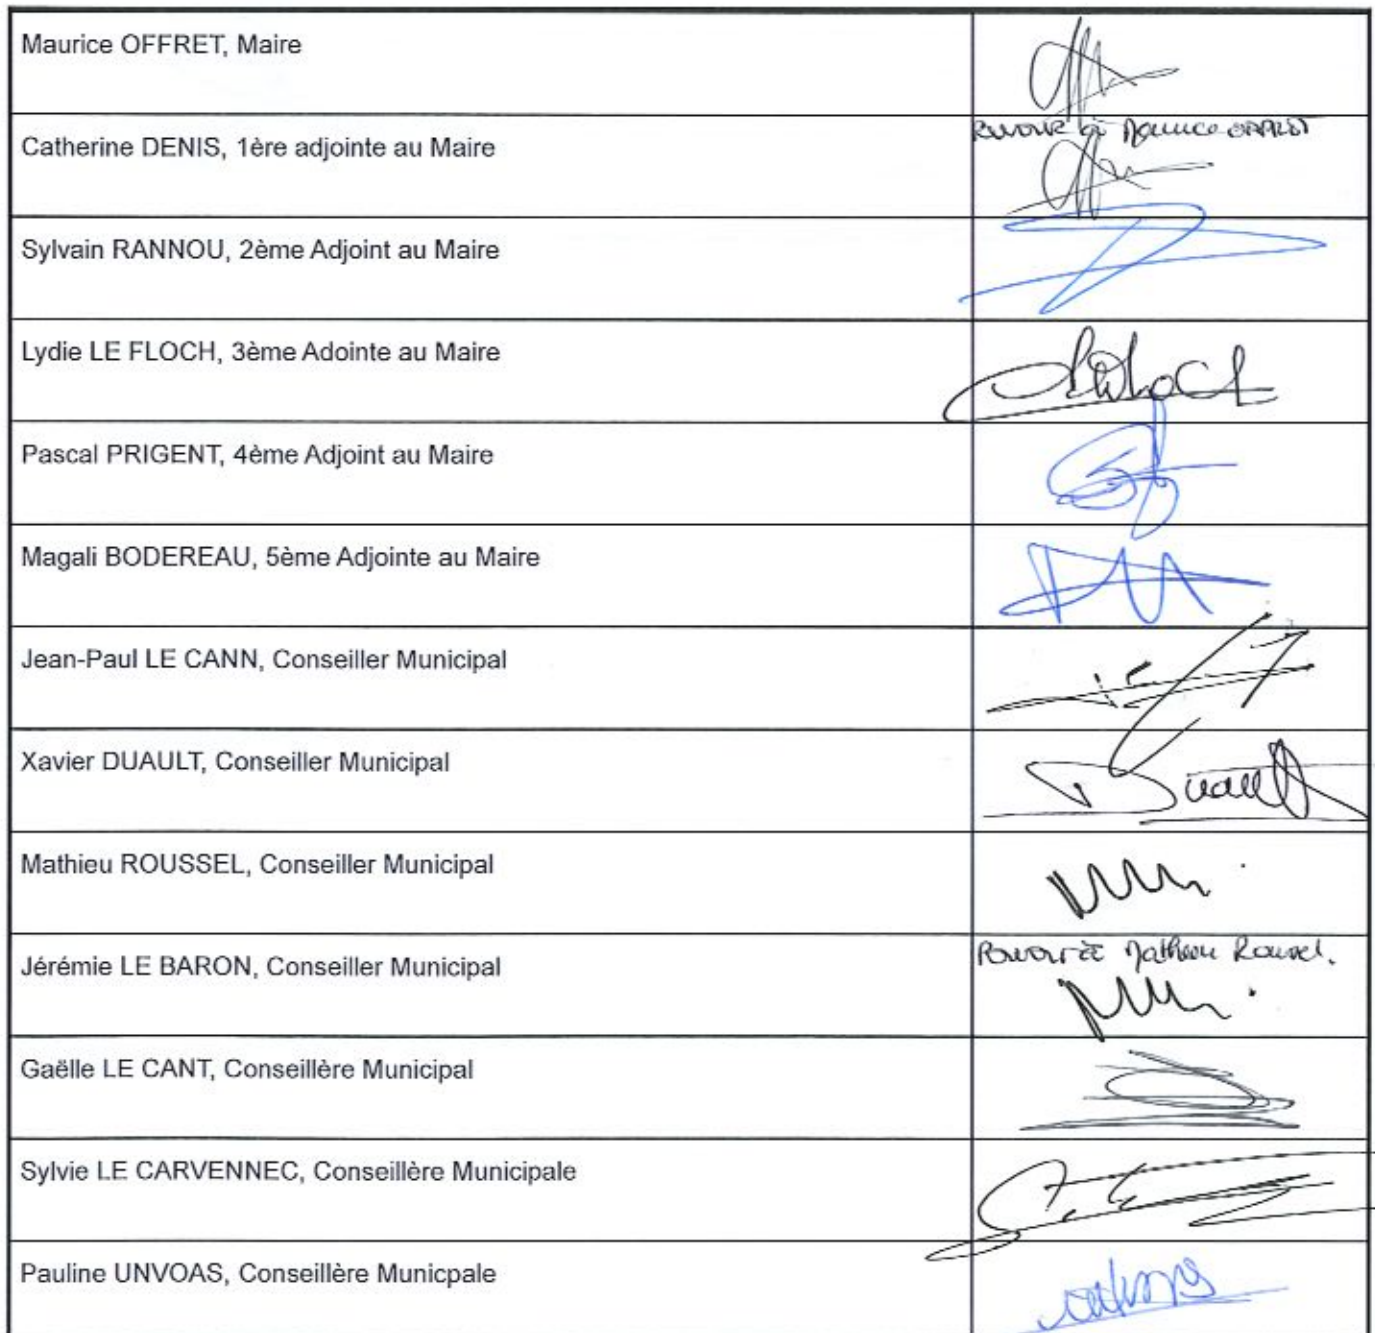 Maurice OFFRET, Maire
Catherine DENIS, 1ère adjointe au Maire
Pouvoir à Maurice OFFRET
Sylvain RANNOU, 2ème Adjoint au Maire
Lydie LE FLOCH, 3ème Adointe au Maire
Pascal PRIGENT, 4ème Adjoint au Maire
Magali BODEREAU, 5ème Adjointe au Maire
Jean-Paul LE CANN, Conseiller Municipal
Xavier DUAULT, Conseiller Municipal
Duault
Mathieu ROUSSEL, Conseiller Municipal
Jérémie LE BARON, Conseiller Municipal
Pouvoir à Mathieu Roussel.
Gaëlle LE CANT, Conseillère Municipal
Sylvie LE CARVENNEC, Conseillère Municipale
Pauline UNVOAS, Conseillère Municpale